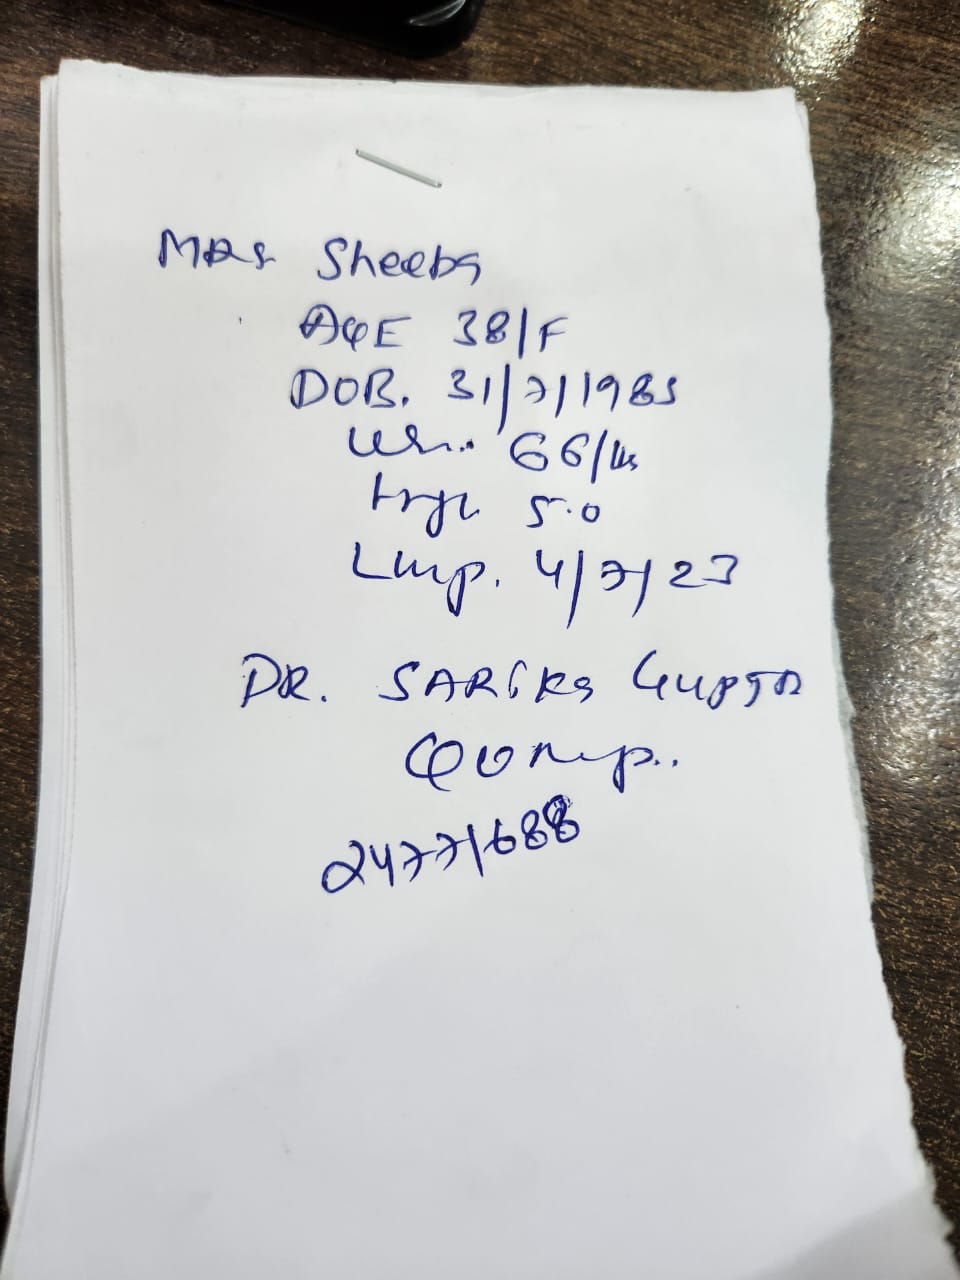 MRS Sheeba
AGE 38/F
DOB. 31/7/1985
Wt.. 66/kg
Hgt 5.0
Lmp. 4/7/23
DR. SARIKA GUPTA
24771688